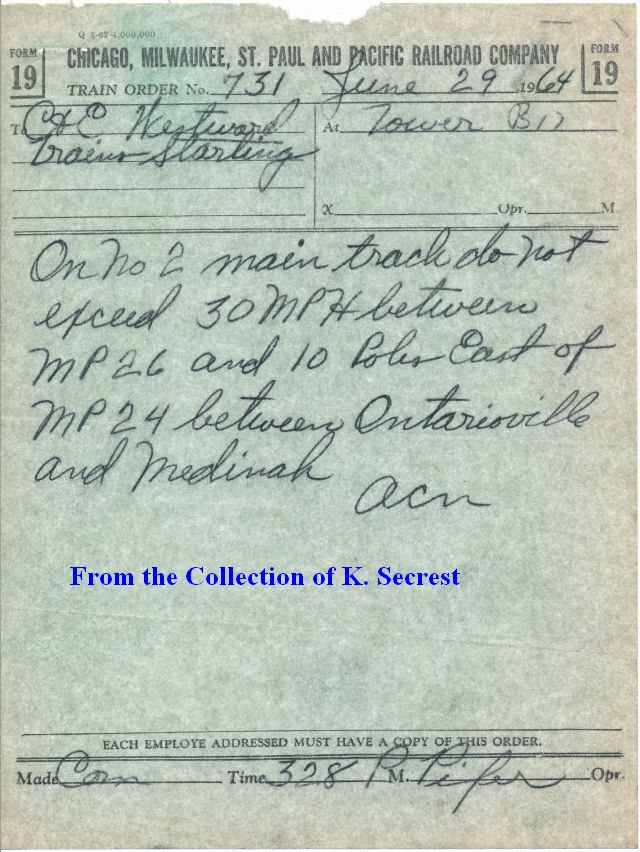 Q 5-62 4,000,000
FORM 19
CHICAGO, MILWAUKEE, ST. PAUL AND PACIFIC RAILROAD COMPANY
FORM 19
TRAIN ORDER No. 731 June 29 1964
To C&E Westward
Trains Starting
At Tower B17
X Opr. M.
On No 2 main track do not
exceed 30 MPH between
MP 26 and 10 Poles East of
MP 24 between Ontarioville
and Medinah
ACN
From the Collection of K. Secrest
EACH EMPLOYE ADDRESSED MUST HAVE A COPY OF THIS ORDER.
Made Com Time 328 P M. Pifer Opr.